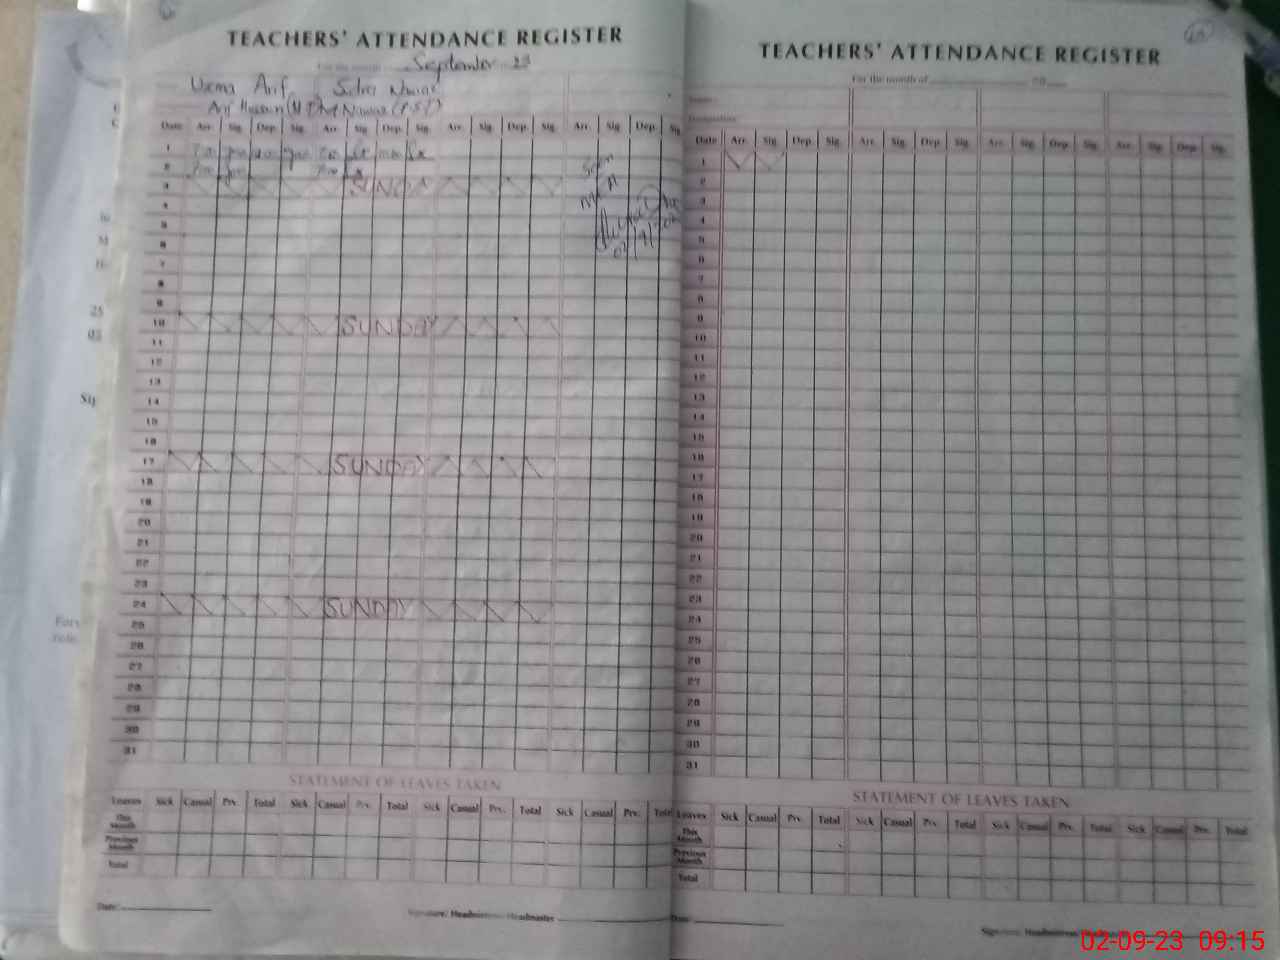 TEACHERS' ATTENDANCE REGISTER
For the month September 23
Uzma Arif
Date Arr. Sig. Dep. Sig. Arr. Sig. Dep. Sig. Arr. Sig. Dep. Sig. Arr. Sig. Dep. Sig
1
2
3 SUNDAY
4
5
6
7
8
9
10 SUNDAY
11
12
13
14
15
16
17 SUNDAY
18
19
20
21
22
23
24 SUNDAY
25
26
27
28
29
30
31
Seen
MEA
STATEMENT OF LEAVES TAKEN
Leaves Sick Casual Prv. Total Sick Casual Prv. Total Sick Casual Prv. Total Sick Casual Prv. Total
This Month
Previous Month
Total
Date:
Signature: Headmistress/Headmaster
TEACHERS' ATTENDANCE REGISTER
For the month of 20
Name:
Designation:
Date Arr. Sig. Dep. Sig. Arr. Sig. Dep. Sig. Arr. Sig. Dep. Sig. Arr. Sig. Dep. Sig.
1
2
3
4
5
6
7
8
9
10
11
12
13
14
15
16
17
18
19
20
21
22
23
24
25
26
27
28
29
30
31
STATEMENT OF LEAVES TAKEN
Leaves Sick Casual Prv. Total Sick Casual Prv. Total Sick Casual Prv. Total Sick Casual Prv. Total
This Month
Previous Month
Total
Date:
Signature: Headmistress/Headmaster
02-09-23 09:15